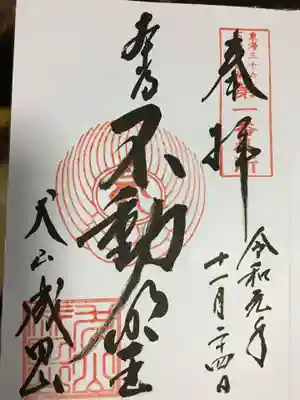 東海三十六
第一番札所
奉拝
令和元年
十一月二十四日
本尊
不動明王
犬山成田山